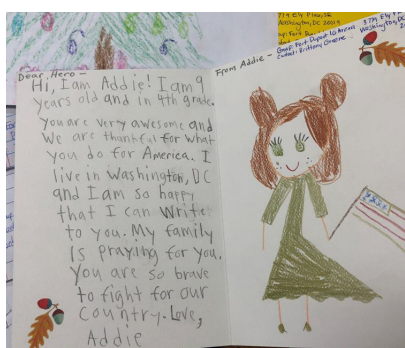 Dear, Hero -
Hi, I am Addie! I am 9
years old and in 4th grade.
you are very awesome and
we are thankful for what
you do for America. I
live in Washington, DC
and I am so happy
that I can Write
to you. My family
is praying for you.
You are so brave
to fight for our
Country. Love,
Addie
From Addie -